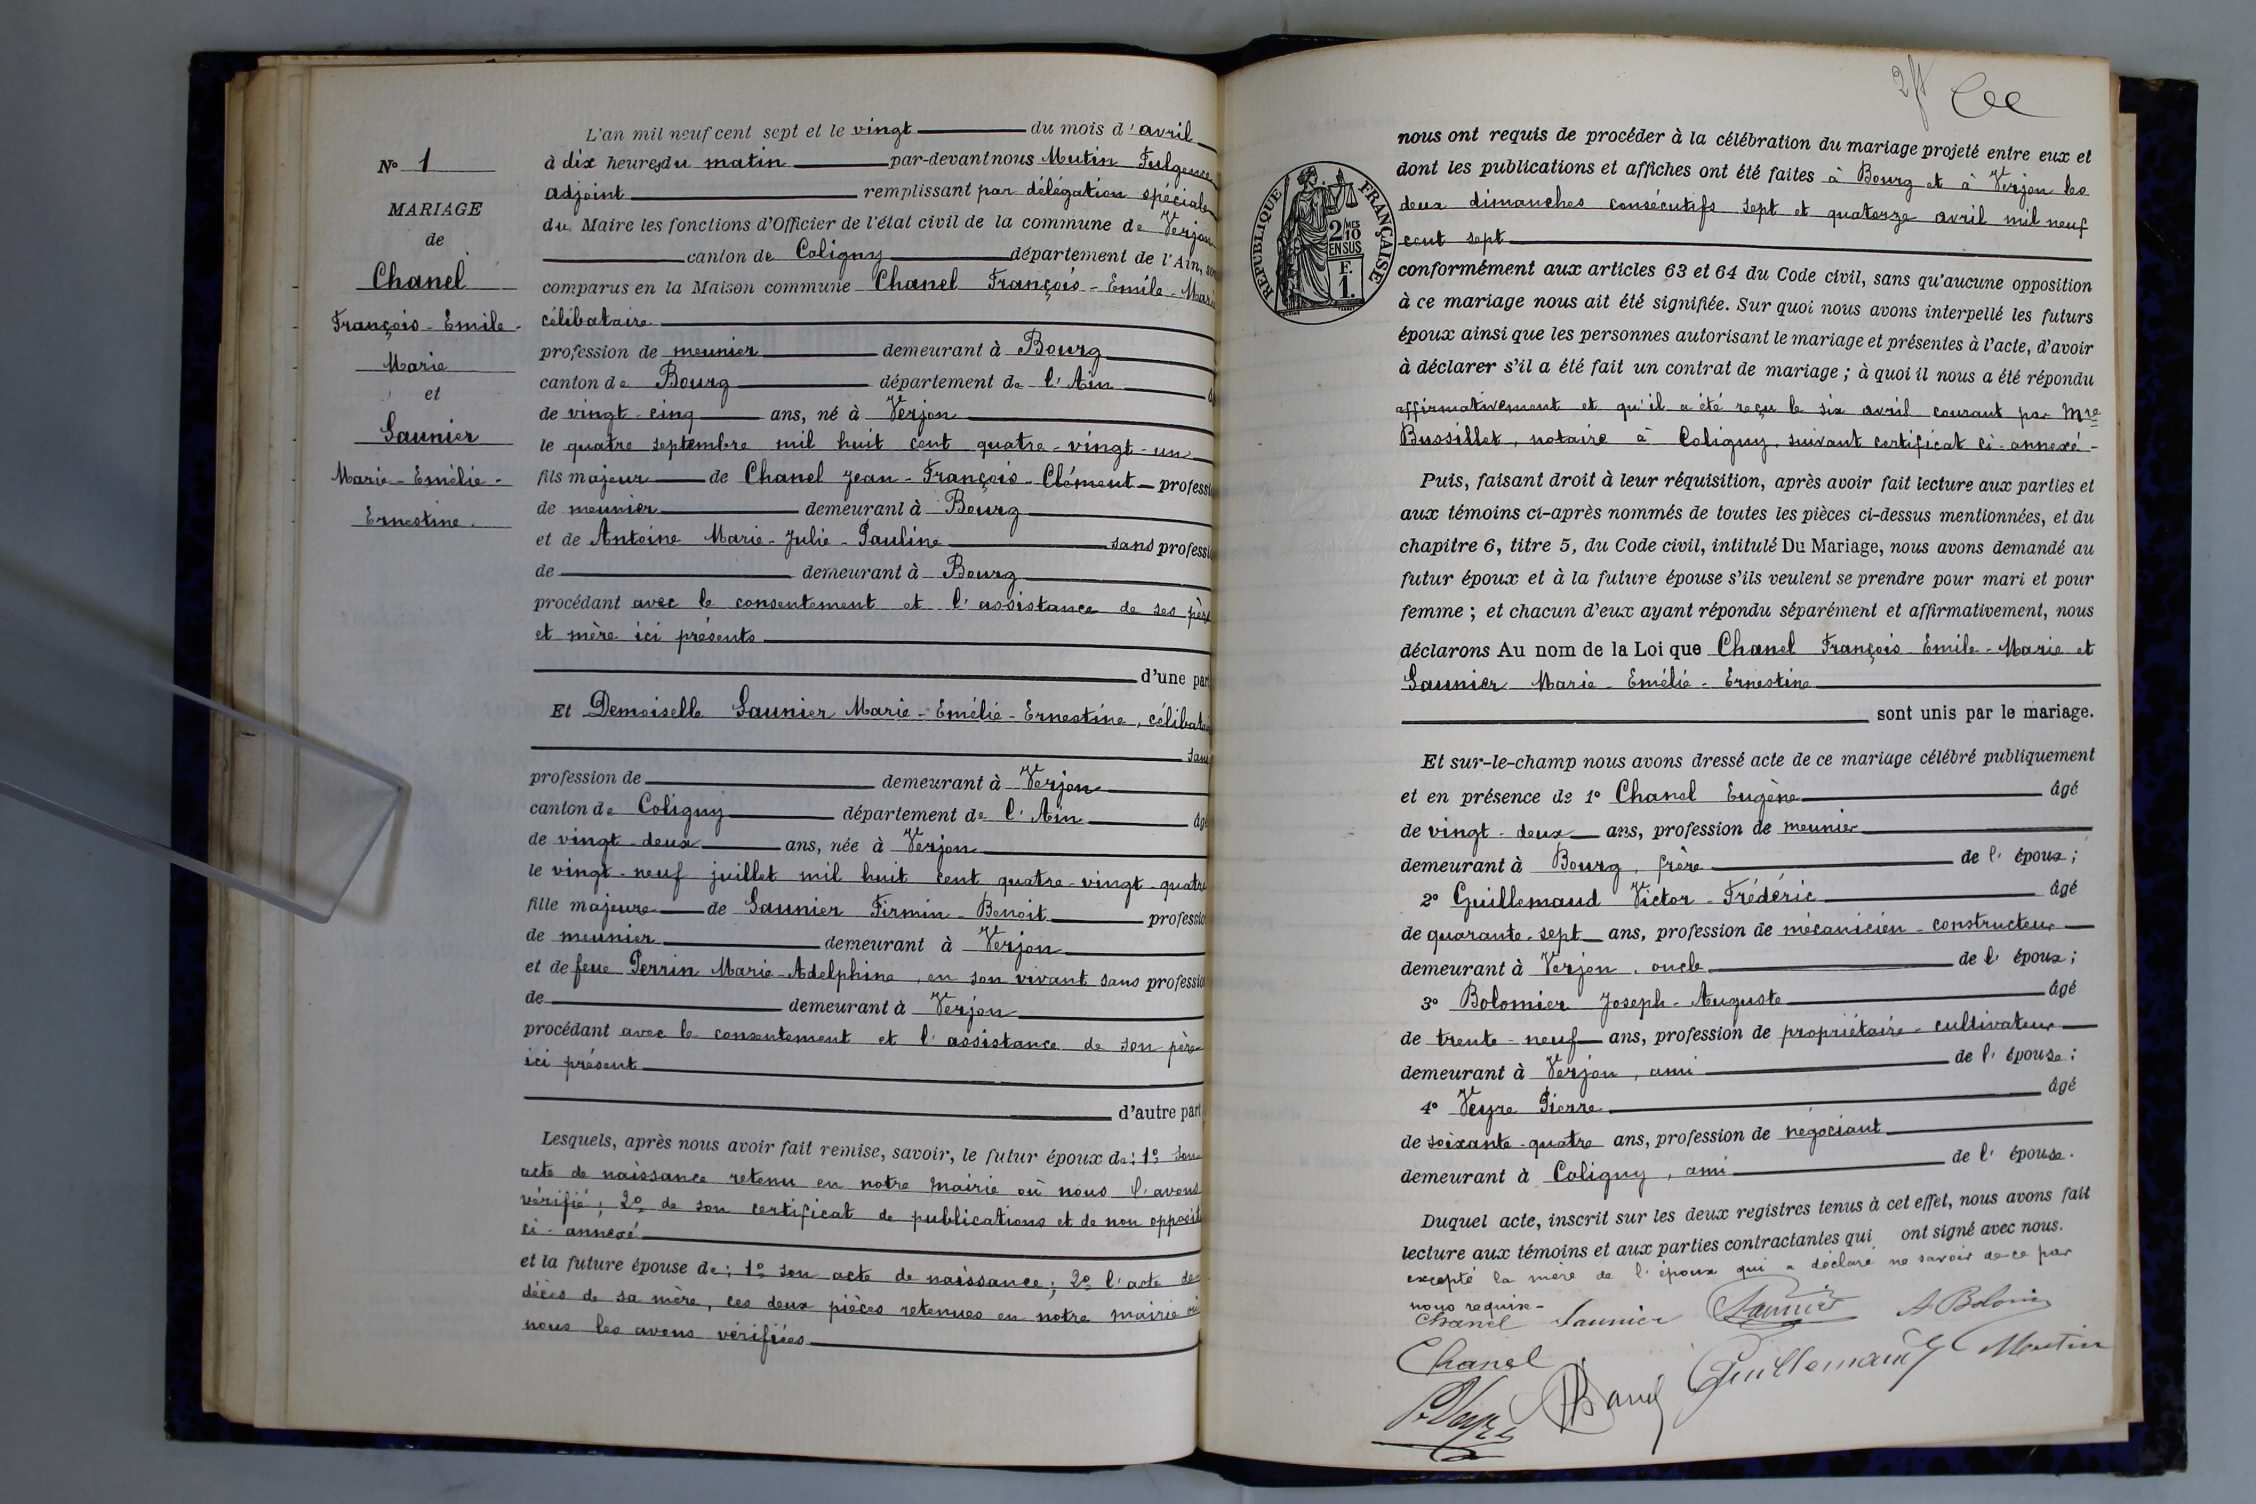 N° 1
MARIAGE
de
Chanel
François-Emile-
Marie
et
Saunier
Marie-Emélie-
Ernestine.
L'an mil neuf cent sept et le vingt du mois d'avril
à dix heures du matin par-devant nous Mutin Fulgence
adjoint remplissant par délégation spéciale
du Maire les fonctions d'Officier de l'état civil de la commune de Verjon
canton de Coligny département de l'Ain,
comparus en la Maison commune Chanel François-Emile-Marie
célibataire
profession de meunier demeurant à Bourg
canton de Bourg département de l'Ain
de vingt-cinq ans, né à Verjon
le quatre septembre mil huit cent quatre-vingt-un
fils majeur de Chanel Jean-François-Clément professi
de meunier demeurant à Bourg
et de Antoine Marie-Julie-Pauline sans professi
de demeurant à Bourg
procédant avec le consentement et l'assistance de ses père
et mère ici présents
d'une part
Et Demoiselle Saunier Marie-Emélie-Ernestine, célibatai
sans
profession de demeurant à Verjon
canton de Coligny département de l'Ain âgé
de vingt-deux ans, née à Verjon
le vingt-neuf juillet mil huit cent quatre-vingt-quatre
fille majeure de Saunier Firmin-Benoit profession
de meunier demeurant à Verjon
et de feue Perrin Marie-Adelphine, en son vivant sans profession
de demeurant à Verjon
procédant avec le consentement et l'assistance de son père
ici présent
d'autre part
Lesquels, après nous avoir fait remise, savoir, le futur époux de: 1° son
acte de naissance retenu en notre mairie où nous l'avons
vérifié; 2° de son certificat de publications et de non opposit
ci-annexé
et la future épouse de: 1° son acte de naissance; 2° l'acte de
décès de sa mère, ces deux pièces retenues en notre mairie où
nous les avons vérifiées
2ft
REPUBLIQUE FRANÇAISE
2/10 MES
EN SUS
F.
1.
nous ont requis de procéder à la célébration du mariage projeté entre eux et
dont les publications et affiches ont été faites à Bourg et à Verjon les
deux dimanches consécutifs sept et quatorze avril mil neuf
cent sept
conformément aux articles 63 et 64 du Code civil, sans qu'aucune opposition
à ce mariage nous ait été signifiée. Sur quoi nous avons interpellé les futurs
époux ainsi que les personnes autorisant le mariage et présentes à l'acte, d'avoir
à déclarer s'il a été fait un contrat de mariage; à quoi il nous a été répondu
affirmativement et qu'il a été reçu le six avril courant par Mre
Bussillet, notaire à Coligny, suivant certificat ci-annexé-
Puis, faisant droit à leur réquisition, après avoir fait lecture aux parties et
aux témoins ci-après nommés de toutes les pièces ci-dessus mentionnées, et du
chapitre 6, titre 5, du Code civil, intitulé Du Mariage, nous avons demandé au
futur époux et à la future épouse s'ils veulent se prendre pour mari et pour
femme; et chacun d'eux ayant répondu séparément et affirmativement, nous
déclarons Au nom de la Loi que Chanel François-Emile-Marie et
Saunier Marie-Emélie-Ernestine
sont unis par le mariage.
Et sur-le-champ nous avons dressé acte de ce mariage célébré publiquement
et en présence de 1° Chanel Eugène âgé
de vingt-deux ans, profession de meunier
demeurant à Bourg, frère de l'époux;
2° Guillemaud Victor-Frédéric âgé
de quarante-sept ans, profession de mécanicien-constructeur
demeurant à Verjon, oncle de l'époux;
3° Bolomier Joseph-Auguste âgé
de trente-neuf ans, profession de propriétaire-cultivateur
demeurant à Verjon, ami de l'épouse;
4° Veyre Pierre âgé
de soixante-quatre ans, profession de négociant
demeurant à Coligny, ami de l'épouse.
Duquel acte, inscrit sur les deux registres tenus à cet effet, nous avons fait
lecture aux témoins et aux parties contractantes qui ont signé avec nous.
excepté la mère de l'époux qui a déclaré ne savoir de ce par
nous requise-
Chanel Saunier Saunier A Bolomier
Chanel Guillemaud Mutin
P. Veyre